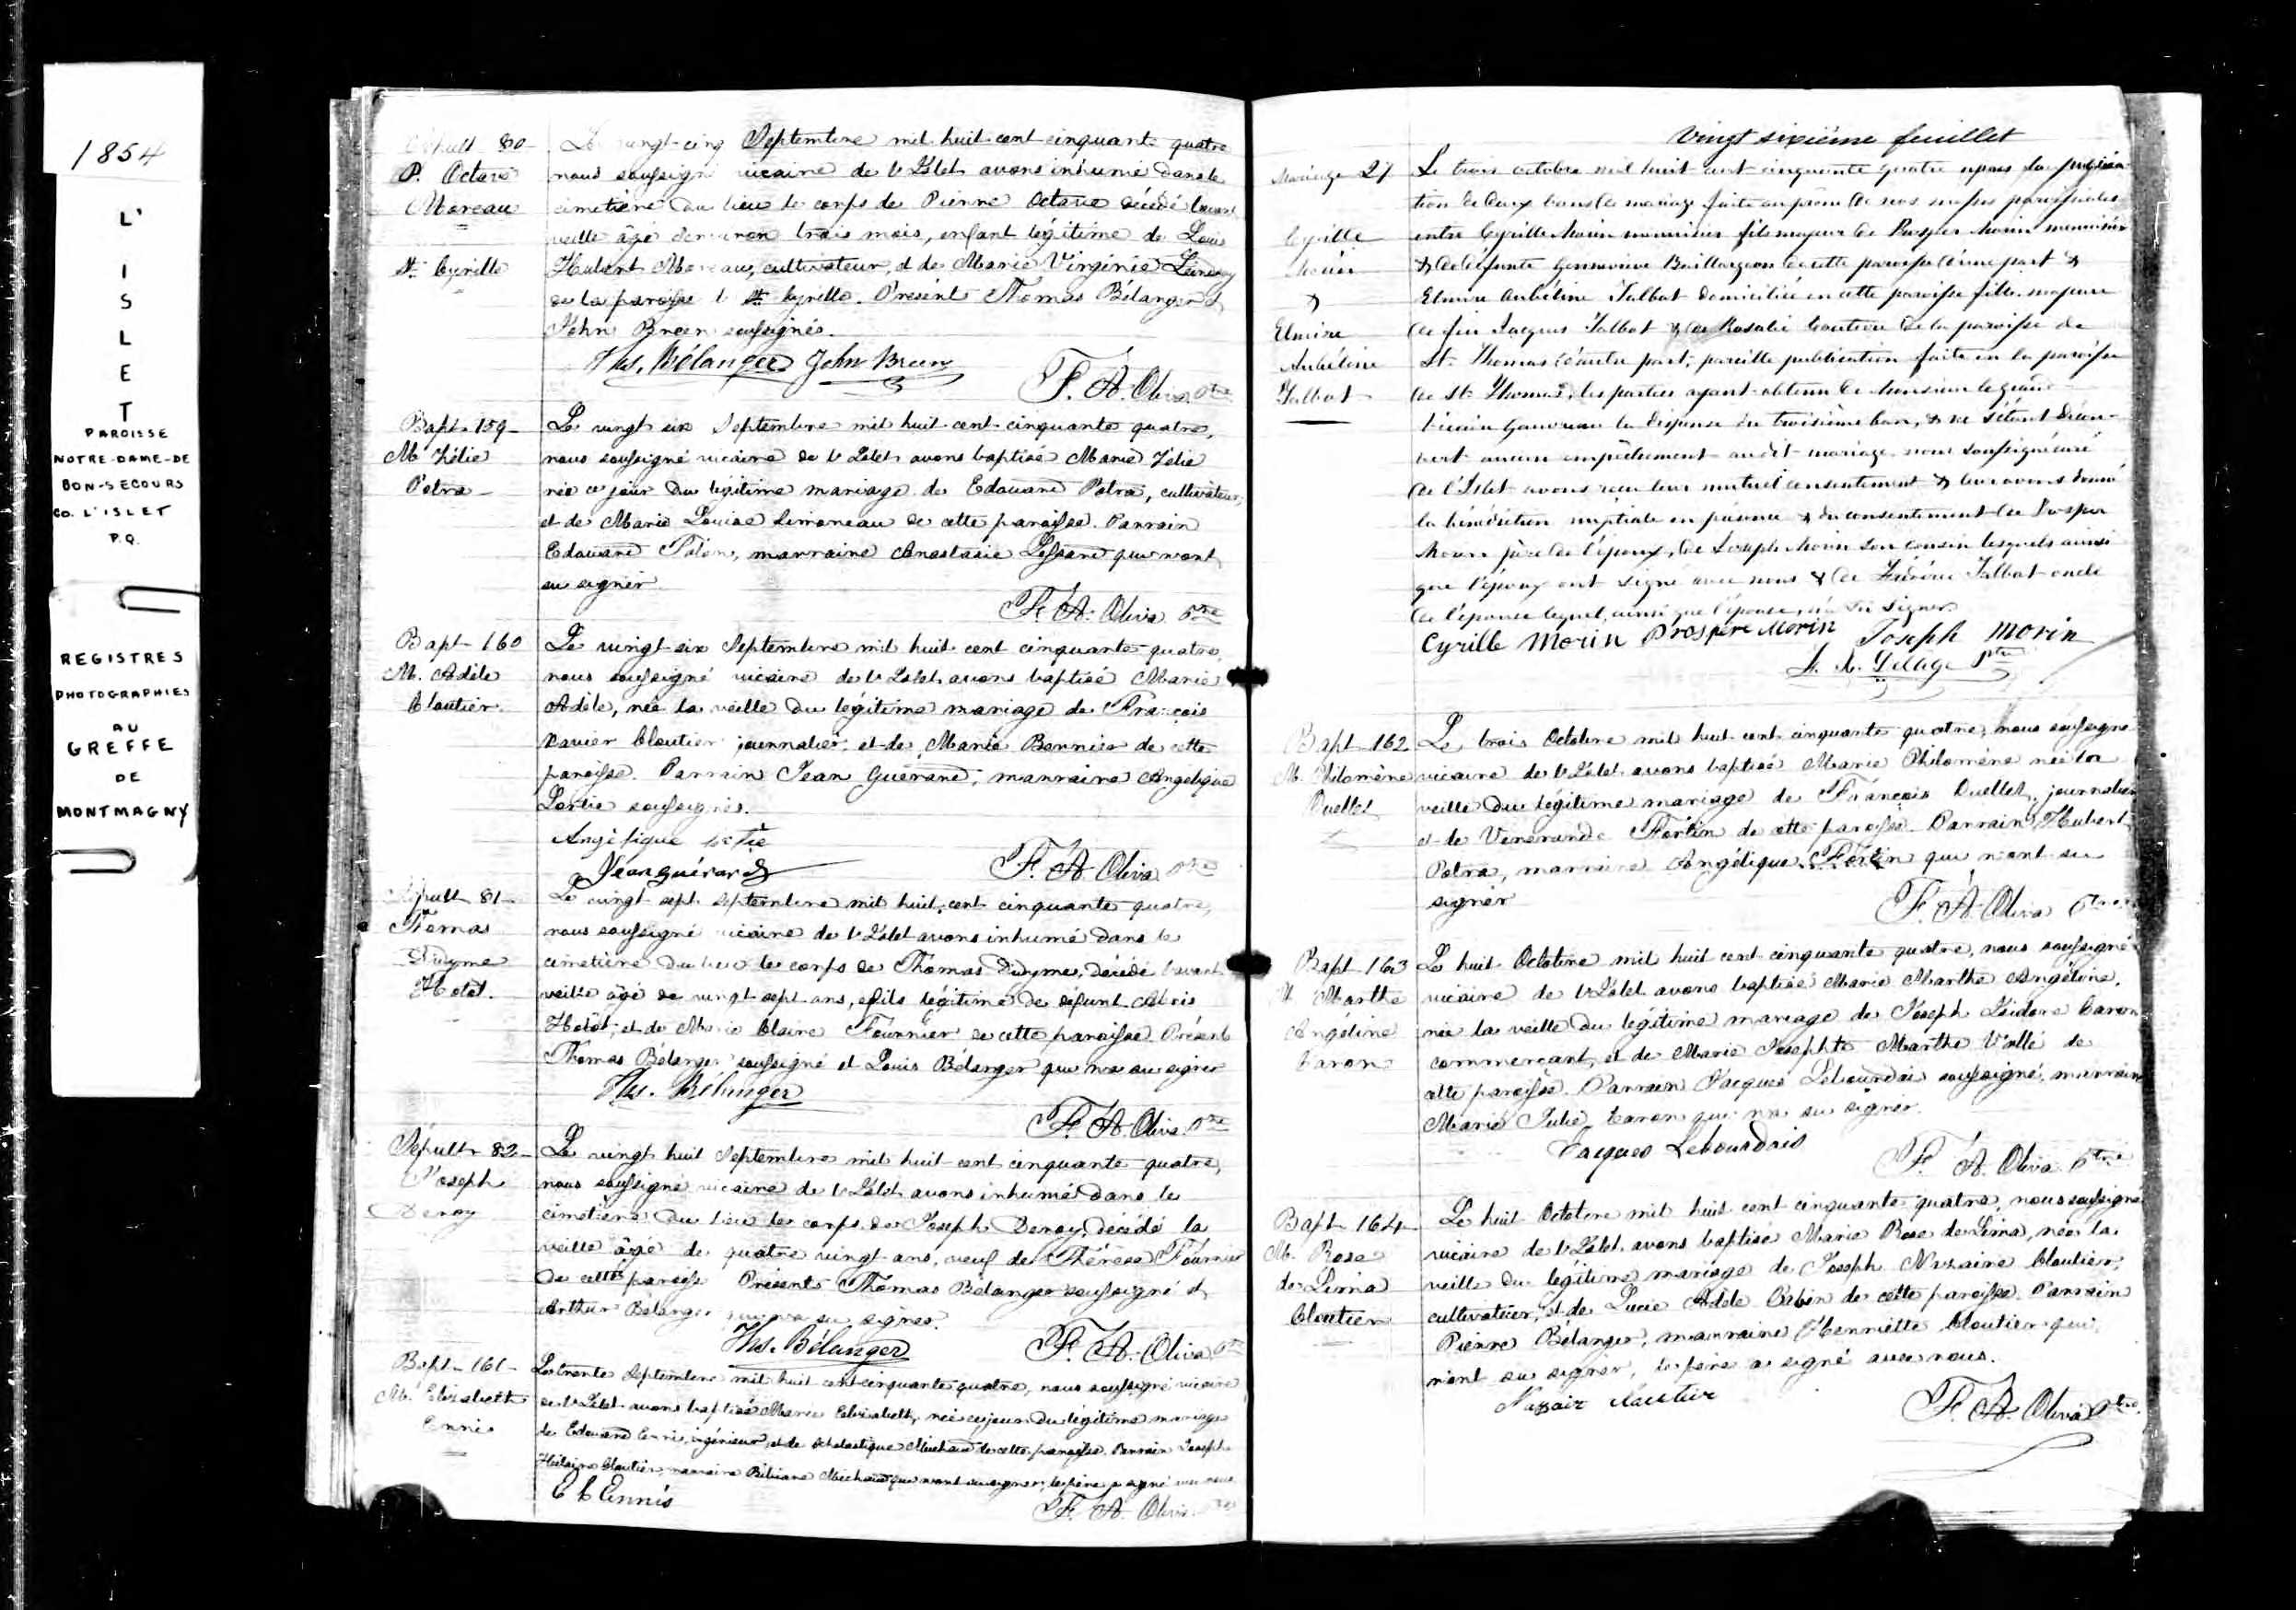 1854
L'
I
S
L
E
T
PAROISSE
NOTRE-DAME-DE
BON-SECOURS
CO. L'ISLET
P.Q.
REGISTRES
PHOTOGRAPHIES
AU
GREFFE
DE
MONTMAGNY
80
P. Octave
Moreau
St. Cyrille
Le vingt-cinq Septembre mil huit-cent-cinquante quatre
nous soussigné vicaire de l'Islet avons inhumé dans le
cimetière du lieu le corps de Pierre Octave décédé l'avant
veille âgé d'environ trois mois, enfant légitime de Louis
Hubert Moreau, cultivateur, et de Marie Virginie
de la paroisse St. Cyrille. Présent Thomas Bélanger &
John Breen soussignés.
Ths. Bélanger John Breen
F. A. Oliva Ptre
Bapt. 159
M. Zélie
Potra
Le vingt six Septembre mil huit-cent-cinquante quatre,
nous soussigné vicaire de l'Islet avons baptisé Marie Zélie
née ce jour du légitime mariage de Edouard Potra, cultivateur,
et de Marie Louise Simoneau de cette paroisse. Parrain
Edouard marraine Anastasie Lessard qui n'ont
su signer.
F. A. Oliva Ptre
Bapt. 160
M. Adèle
Cloutier
Le vingt-six Septembre mil huit cent cinquante-quatre
nous soussigné vicaire de l'Islet avons baptisé Marie
Adèle, née la veille du légitime mariage de François
Xavier Cloutier journalier, et de Marie Bernier de cette
paroisse. Parrain Jean Guérard, marraine Angélique
Lortie soussignés.
Angélique Lortie
Jean guérard
F. A. Oliva Ptre
Sépult. 81
Thomas
Didyme
Hotot.
Le vingt-sept Septembre mil huit-cent cinquante quatre,
nous soussigné vicaire de l'Islet avons inhumé dans le
cimetière du lieu le corps de Thomas Didyme, décédé l'avant
veille âgé de vingt sept ans, fils légitime de défunt Alexis
Hotot, et de Marie Claire Fournier de cette paroisse. Présent
Thomas Bélanger soussigné et Louis Bélanger qui n'a su signer
Ths. Bélanger
F. A. Oliva Ptre
Sépult. 82
Joseph
Deroy
Le vingt huit Septembre mil huit-cent cinquante quatre,
nous soussigné vicaire de l'Islet avons inhumé dans le
cimetière du lieu le corps de Joseph Deroy, décédé la
veille âgé de quatre vingt ans, veuf de Thérèse Fournier
de cette paroisse. Présents Thomas Bélanger soussigné et
Arthur Bélanger qui n'a su signer.
Ths. Bélanger
F. A. Oliva Ptre
Bapt. 161
M. Elisabeth
Ennis
Le trente Septembre mil huit cent cinquante quatre, nous soussigné vicaire
de l'Islet avons baptisé Marie Elisabeth, née ce jour du légitime mariage
de Edouard Ennis, ingénieur, et de Scholastique Michaud de cette paroisse. Parrain Joseph
Hilaire Cloutier, marraine Bibiane Michaud qui n'ont su signer, le père a signé avec nous
E C Ennis
F. A. Oliva Ptre
Vingt sixième feuillet
Mariage 27
Cyrille
Morin
&
Elmire
Aubéline
Talbot
Le trois octobre mil huit cent cinquante quatre après la publica-
tion de deux bans de mariage faite au prône de nos messes paroissiales
entre Cyrille Morin menuisier fils majeur de Prosper Morin menuisier
& de défunte Geneviève Baillargeon de cette paroisse d'une part &
Elmire Aubéline Talbot domiciliée en cette paroisse fille majeure
de feu Jacques Talbot & de Rosalie Couture de la paroisse de
St. Thomas d'autre part; pareille publication faite en la paroisse
de St. Thomas, les parties ayant obtenu de Monsieur le grand
Vicaire Gauvreau la dispense du troisième ban, & ne s'étant décou-
vert aucun empêchement au dit mariage nous soussigné curé
de l'Islet avons reçu leur mutuel consentement & leur avons donné
la bénédiction nuptiale en présence & du consentement de Prosper
Morin père de l'époux, de Joseph Morin son cousin lesquels ainsi
que l'époux ont signé avec nous & de Talbot oncle
de l'épouse lequel, ainsi que l'épouse, n'a su signer.
Cyrille Morin Prospère Morin Joseph Morin
F. X. Delâge Ptre
Bapt. 162
M. Philomène
Ouellet
Le trois Octobre mil huit cent cinquante quatre, nous soussigné
vicaire de l'Islet avons baptisé Marie Philomène née la
veille du légitime mariage de François Ouellet, journalier
et de Vénérande Fortin de cette paroisse. Parrain Hubert
Potra, marraine Angélique Fortin qui n'ont su
signer
F. A. Oliva Ptre
Bapt. 163
M. Marthe
Angéline
Caron
Le huit Octobre mil huit cent cinquante quatre, nous soussigné
vicaire de l'Islet avons baptisé Marie Marthe Angéline,
née la veille du légitime mariage de Joseph Isidore Caron
commerçant, et de Marie Josephte Marthe Vallé de
cette paroisse. Parrain Jacques Lebourdais soussigné, marraine
Marie Julie Caron qui n'a su signer.
Jacques Lebourdais
F. A. Oliva Ptre
Bapt. 164
M. Rose
de Lima
Cloutier
Le huit Octobre mil huit cent cinquante quatre, nous soussigné
vicaire de l'Islet avons baptisé Marie Rose de Lima, née la
veille du légitime mariage de Joseph Nazaire Cloutier,
cultivateur, et de Lucie Adèle Babin de cette paroisse. Parrain
Pierre Bélanger, marraine Henriette Cloutier qui
n'ont su signer, le père a signé avec nous.
Nazair Cloutier
F. A. Oliva Ptre